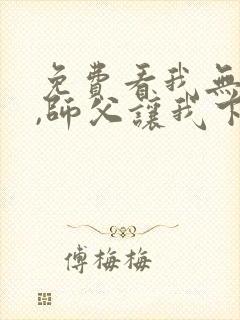 免費看我無
,師父讓我下
傅梅梅